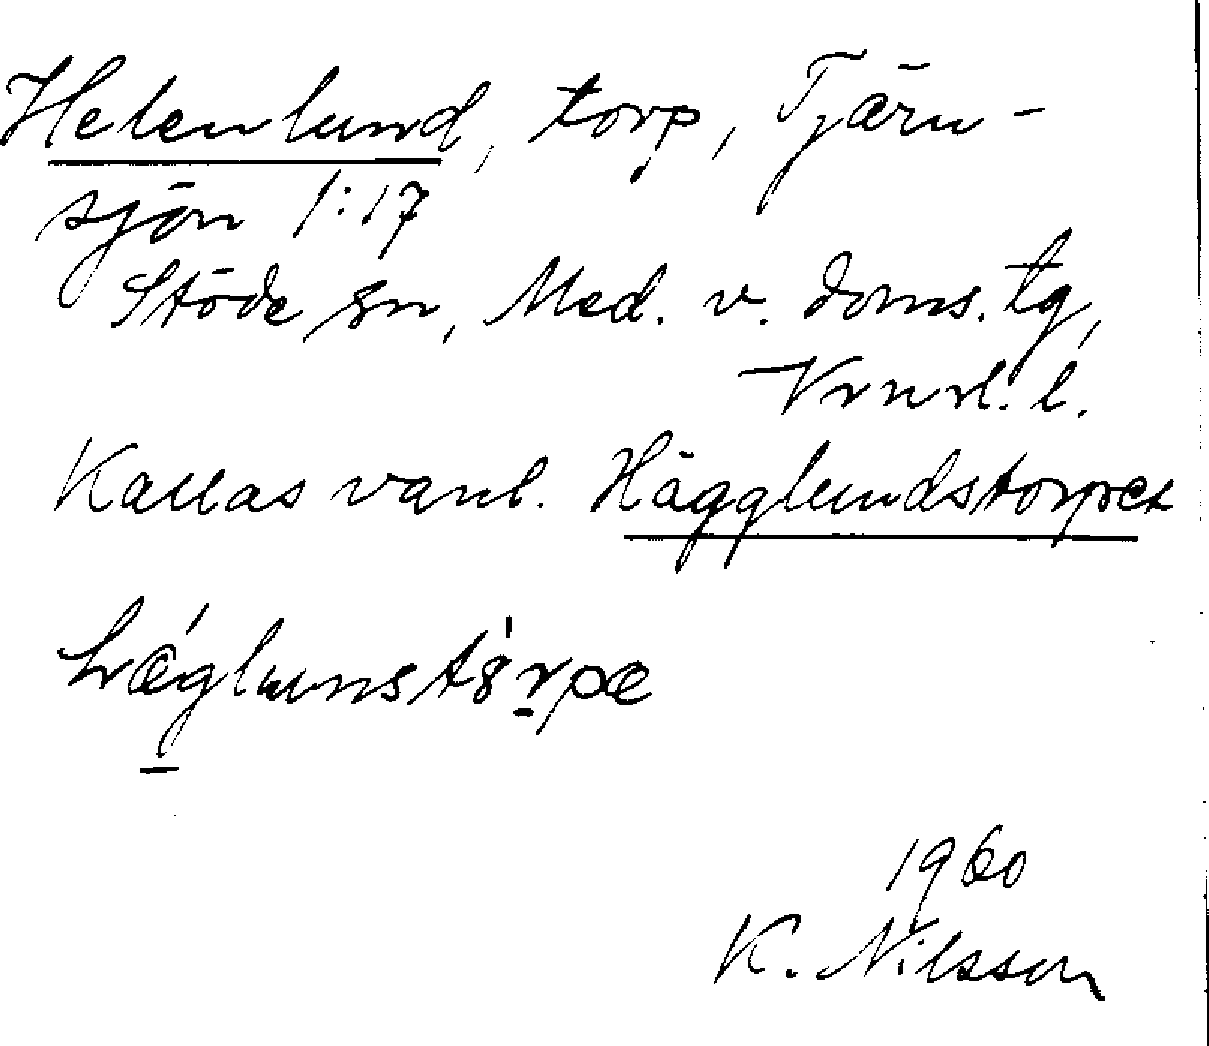 Helenlund, torp, Tjärn-
sjön 1:17
Stöde sn, Med. v. doms. tg,
Vrnrl. l.
Kallas vanl. Hägglundstorpet
1960
K. Nilsson